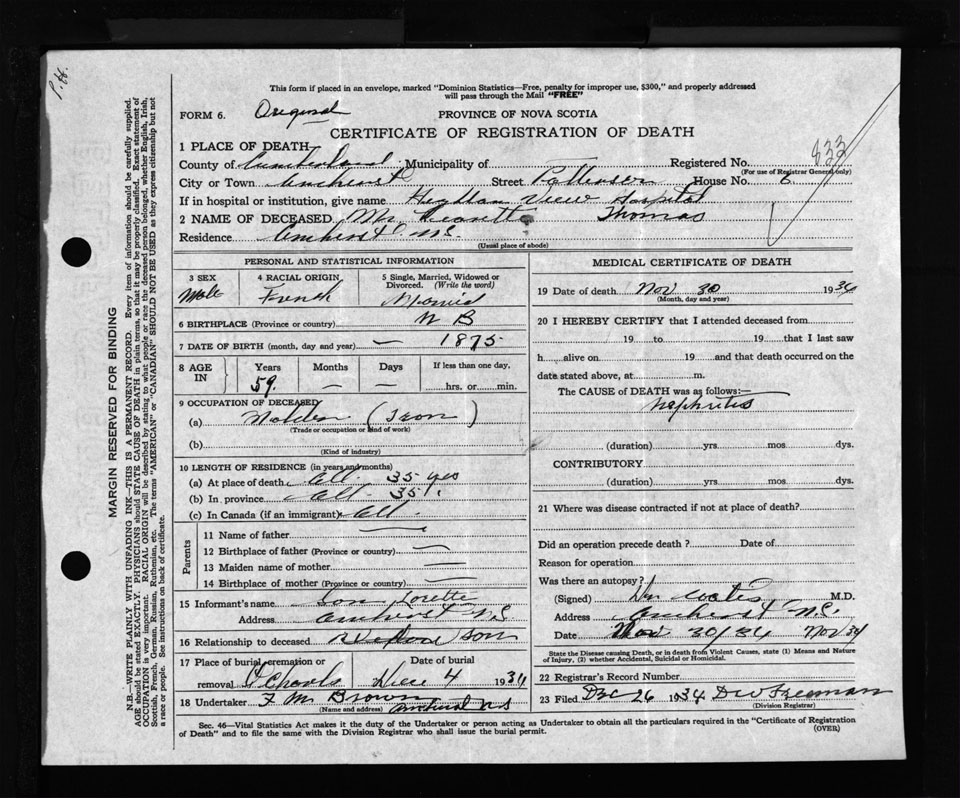 P.H.
This form if placed in an envelope, marked "Dominion Statistics—Free, penalty for improper use, $300," and properly addressed
will pass through the Mail "FREE"
FORM 6. Original PROVINCE OF NOVA SCOTIA
CERTIFICATE OF REGISTRATION OF DEATH
1 PLACE OF DEATH
County of Cumberland Municipality of Registered No.
(For use of Registrar General only)
City or Town Amherst Street House No.
If in hospital or institution, give name Highland View Hospital
2 NAME OF DECEASED Mr. Thomas
Residence Amherst N.S.
(Usual place of abode)
MARGIN RESERVED FOR BINDING
N.B.—WRITE PLAINLY WITH UNFADING INK—THIS IS A PERMANENT RECORD. Every item of information should be carefully supplied.
AGE should be stated EXACTLY. PHYSICIANS should STATE CAUSE OF DEATH in plain terms, so that it may be properly classified. Exact statement of
OCCUPATION is very important. RACIAL ORIGIN will be described by stating to what people or race the deceased person belonged, whether English, Irish,
Scottish, French, German, Russian, Ruthenian, etc. The terms "AMERICAN" or "CANADIAN" SHOULD NOT BE USED as they express citizenship but not
a race or people. See instructions on back of certificate.
PERSONAL AND STATISTICAL INFORMATION
3 SEX 4 RACIAL ORIGIN 5 Single, Married, Widowed or
Divorced. (Write the word)
Male French Married
6 BIRTHPLACE (Province or country) N B
7 DATE OF BIRTH (month, day and year) — 1875
8 AGE IN Years Months Days If less than one day,
59. — — hrs. or min.
9 OCCUPATION OF DECEASED
(a) Molder (Iron)
(Trade or occupation or kind of work)
(b)
(Kind of industry)
10 LENGTH OF RESIDENCE (in years and months)
(a) At place of death All - 35 yrs
(b) In province All - 35
(c) In Canada (if an immigrant) All.
Parents
11 Name of father —
12 Birthplace of father (Province or country) —
13 Maiden name of mother —
14 Birthplace of mother (Province or country) —
15 Informant's name Lorette
Address Amherst N.S
16 Relationship to deceased Son
17 Place of burial, cremation or Date of burial
removal Dec 4 1934
18 Undertaker F. M. Brown
(Name and address) Amherst N S
MEDICAL CERTIFICATE OF DEATH
19 Date of death Nov 30 1934
(Month, day and year)
20 I HEREBY CERTIFY that I attended deceased from
19 to 19 that I last saw
h alive on 19 and that death occurred on the
date stated above, at m.
The CAUSE of DEATH was as follows:—
Nephritis
(duration) yrs mos dys.
CONTRIBUTORY
(duration) yrs mos dys.
21 Where was disease contracted if not at place of death?
Did an operation precede death? Date of
Reason for operation
Was there an autopsy?
(Signed) M.D.
Address Amherst N.S.
Date Nov 30/34 Nov 34
State the Disease causing Death, or in death from Violent Causes, state (1) Means and Nature
of Injury, (2) whether Accidental, Suicidal or Homicidal.
22 Registrar's Record Number
23 Filed Dec 26 1934 Freeman
(Division Registrar)
Sec. 46—Vital Statistics Act makes it the duty of the Undertaker or person acting as Undertaker to obtain all the particulars required in the "Certificate of Registration
of Death" and to file the same with the Division Registrar who shall issue the burial permit.
(OVER)